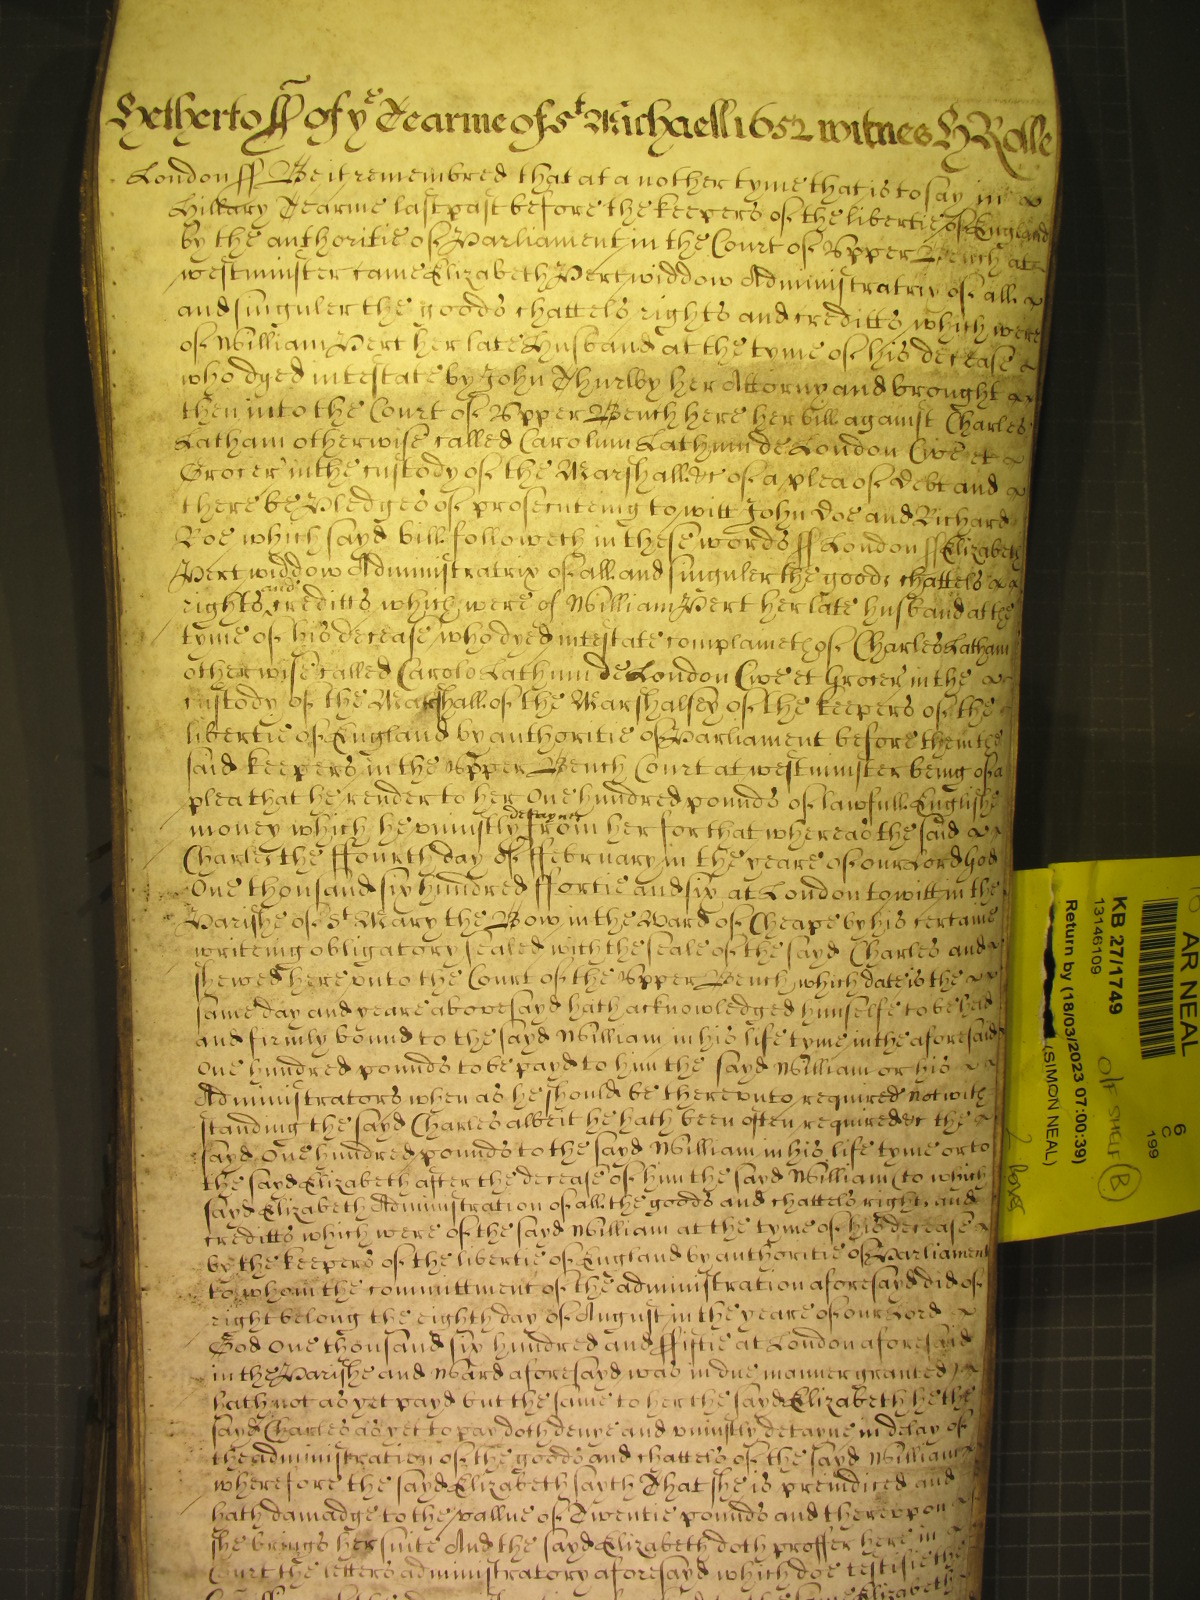 Hetherto ff of ye Tearme of St Michaell 1652 witnes H Rolle
London ff Be it remembred that at a nother tyme that is to say in
Hillary Tearme last past before the keepers of the libertie of England
by the authoritie of Parliament in the Court of Upper Bench att
westminster came Elizabeth Pert widdow Administratrix of all
and singuler the goods chattels rights and creditts which were
of William Pert her late husband at the tyme of his decease
who dyed intestate by John Thurlby her Attorny and brought
then into the Court of Upper Bench here her bill against Charles
Latham otherwise called Carolum Lathum de London Civē et
Grocer in the custody of the Marshall &c of a plea of debt and
there be Pledges of prosecuteing to witt John Doe and Richard
Roe which sayd bill followeth in these words ff London ff Elizabeth
Pert widdow Administratrix of all and singuler the goods chattels
rights and creditts which were of William Pert her late husband at the
tyme of his decease who dyed intestate complaineth of Charles Latham
otherwise called Carolo Lathum de London Cive et Grocer in the
custody of the Marshall of the Marshalsey of the keepers of the
libertie of England by authoritie of Parliament before them the
said keepers in the Upper Bench Court at westminster being of a
plea that he render to her One hundred pounds of lawfull Englishe
money which he uniustly detayne from her for that whereas the said
Charles the ffourth day of ffebruary in the yeare of our Lord God
One thousand six hundred ffortie and six at London to witt in the
Parishe of St Mary the Bow in the Ward of Cheape by his certaine
writeing obligatory sealed with the seale of the sayd Charles and
shewed here unto the Court of the Upper Bench which date is the
same day and yeare abovesayd hath acknowledged himselfe to be held
and firmly bound to the sayd William in his life tyme in the aforesaid
One hundred pounds to be payd to him the sayd William or his
Administrators when as he should be thereunto required notwith
standing the sayd Charles albeit he hath been often required &c the
sayd One hundred pounds to the sayd William in his life tyme or to
the sayd Elizabeth after the decease of him the sayd William (to which
sayd Elizabeth Administration of all the goods and chattels rights and
creditts which were of the sayd William at the tyme of his decease
by the keepers of the libertie of England by authoritie of Parliament
to whom the committment of the administration aforesayd did of
right belong the eighth day of August in the yeare of our Lord
God One thousand six hundred and ffiftie at London aforesaid
in the Parishe and Ward aforesayd was in due manner granted)
hath not as yet payd but the same to her the sayd Elizabeth he the
sayd Charles as yet to pay doth denye and uniustly detayne in delay of
the administration of the goods and chattels of the sayd William
wherefore the sayd Elizabeth sayth That she is preiudiced and
hath damadge to the vallue of Twentie pounds and thereupon
she brings her suite And the sayd Elizabeth doth proffer here in
Court the letters administratory aforesayd which doe testifie the
Elizabeth
AR NEAL
6
C
199
KB 27/1749
13146109
Return by (18/03/2023 07:00:39)
(SIMON NEAL)
O/F SHELF
B
2 boxes